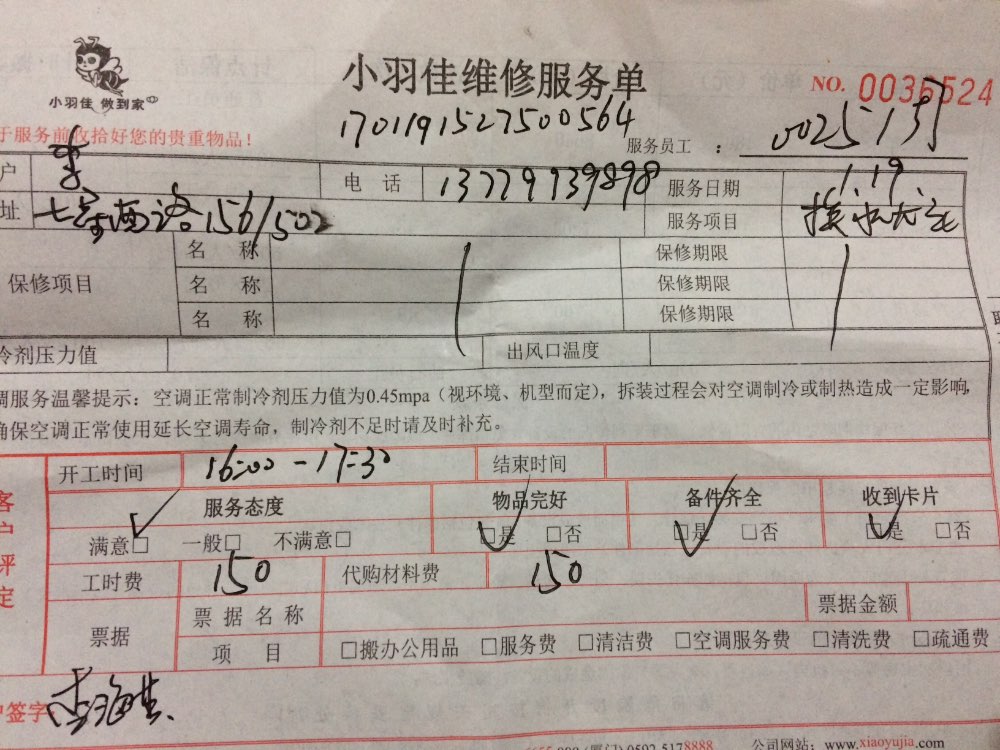 小羽佳 做到家
小羽佳维修服务单
NO. 0036524
于服务前收拾好您的贵重物品！
1701191527500564
服务员工：0025
户 李 电 话 13779939898 服务日期 1.19.
址 七星西路156/502 服务项目 换水龙头
保修项目
名 称 保修期限
名 称 保修期限
名 称 保修期限
冷剂压力值 出风口温度
调服务温馨提示：空调正常制冷剂压力值为0.45mpa（视环境、机型而定），拆装过程会对空调制冷或制热造成一定影响，
确保空调正常使用延长空调寿命，制冷剂不足时请及时补充。
客户评定
开工时间 16:00-17:30 结束时间
服务态度 物品完好 备件齐全 收到卡片
满意□ 一般□ 不满意□ □是 □否 □是 □否 □是 □否
工时费 150 代购材料费 150
票据 票据名称 票据金额
项 目 □搬办公用品 □服务费 □清洁费 □空调服务费 □清洗费 □疏通费
户签字：李
0592-5178888 公司网站：www.xiaoyujia.com